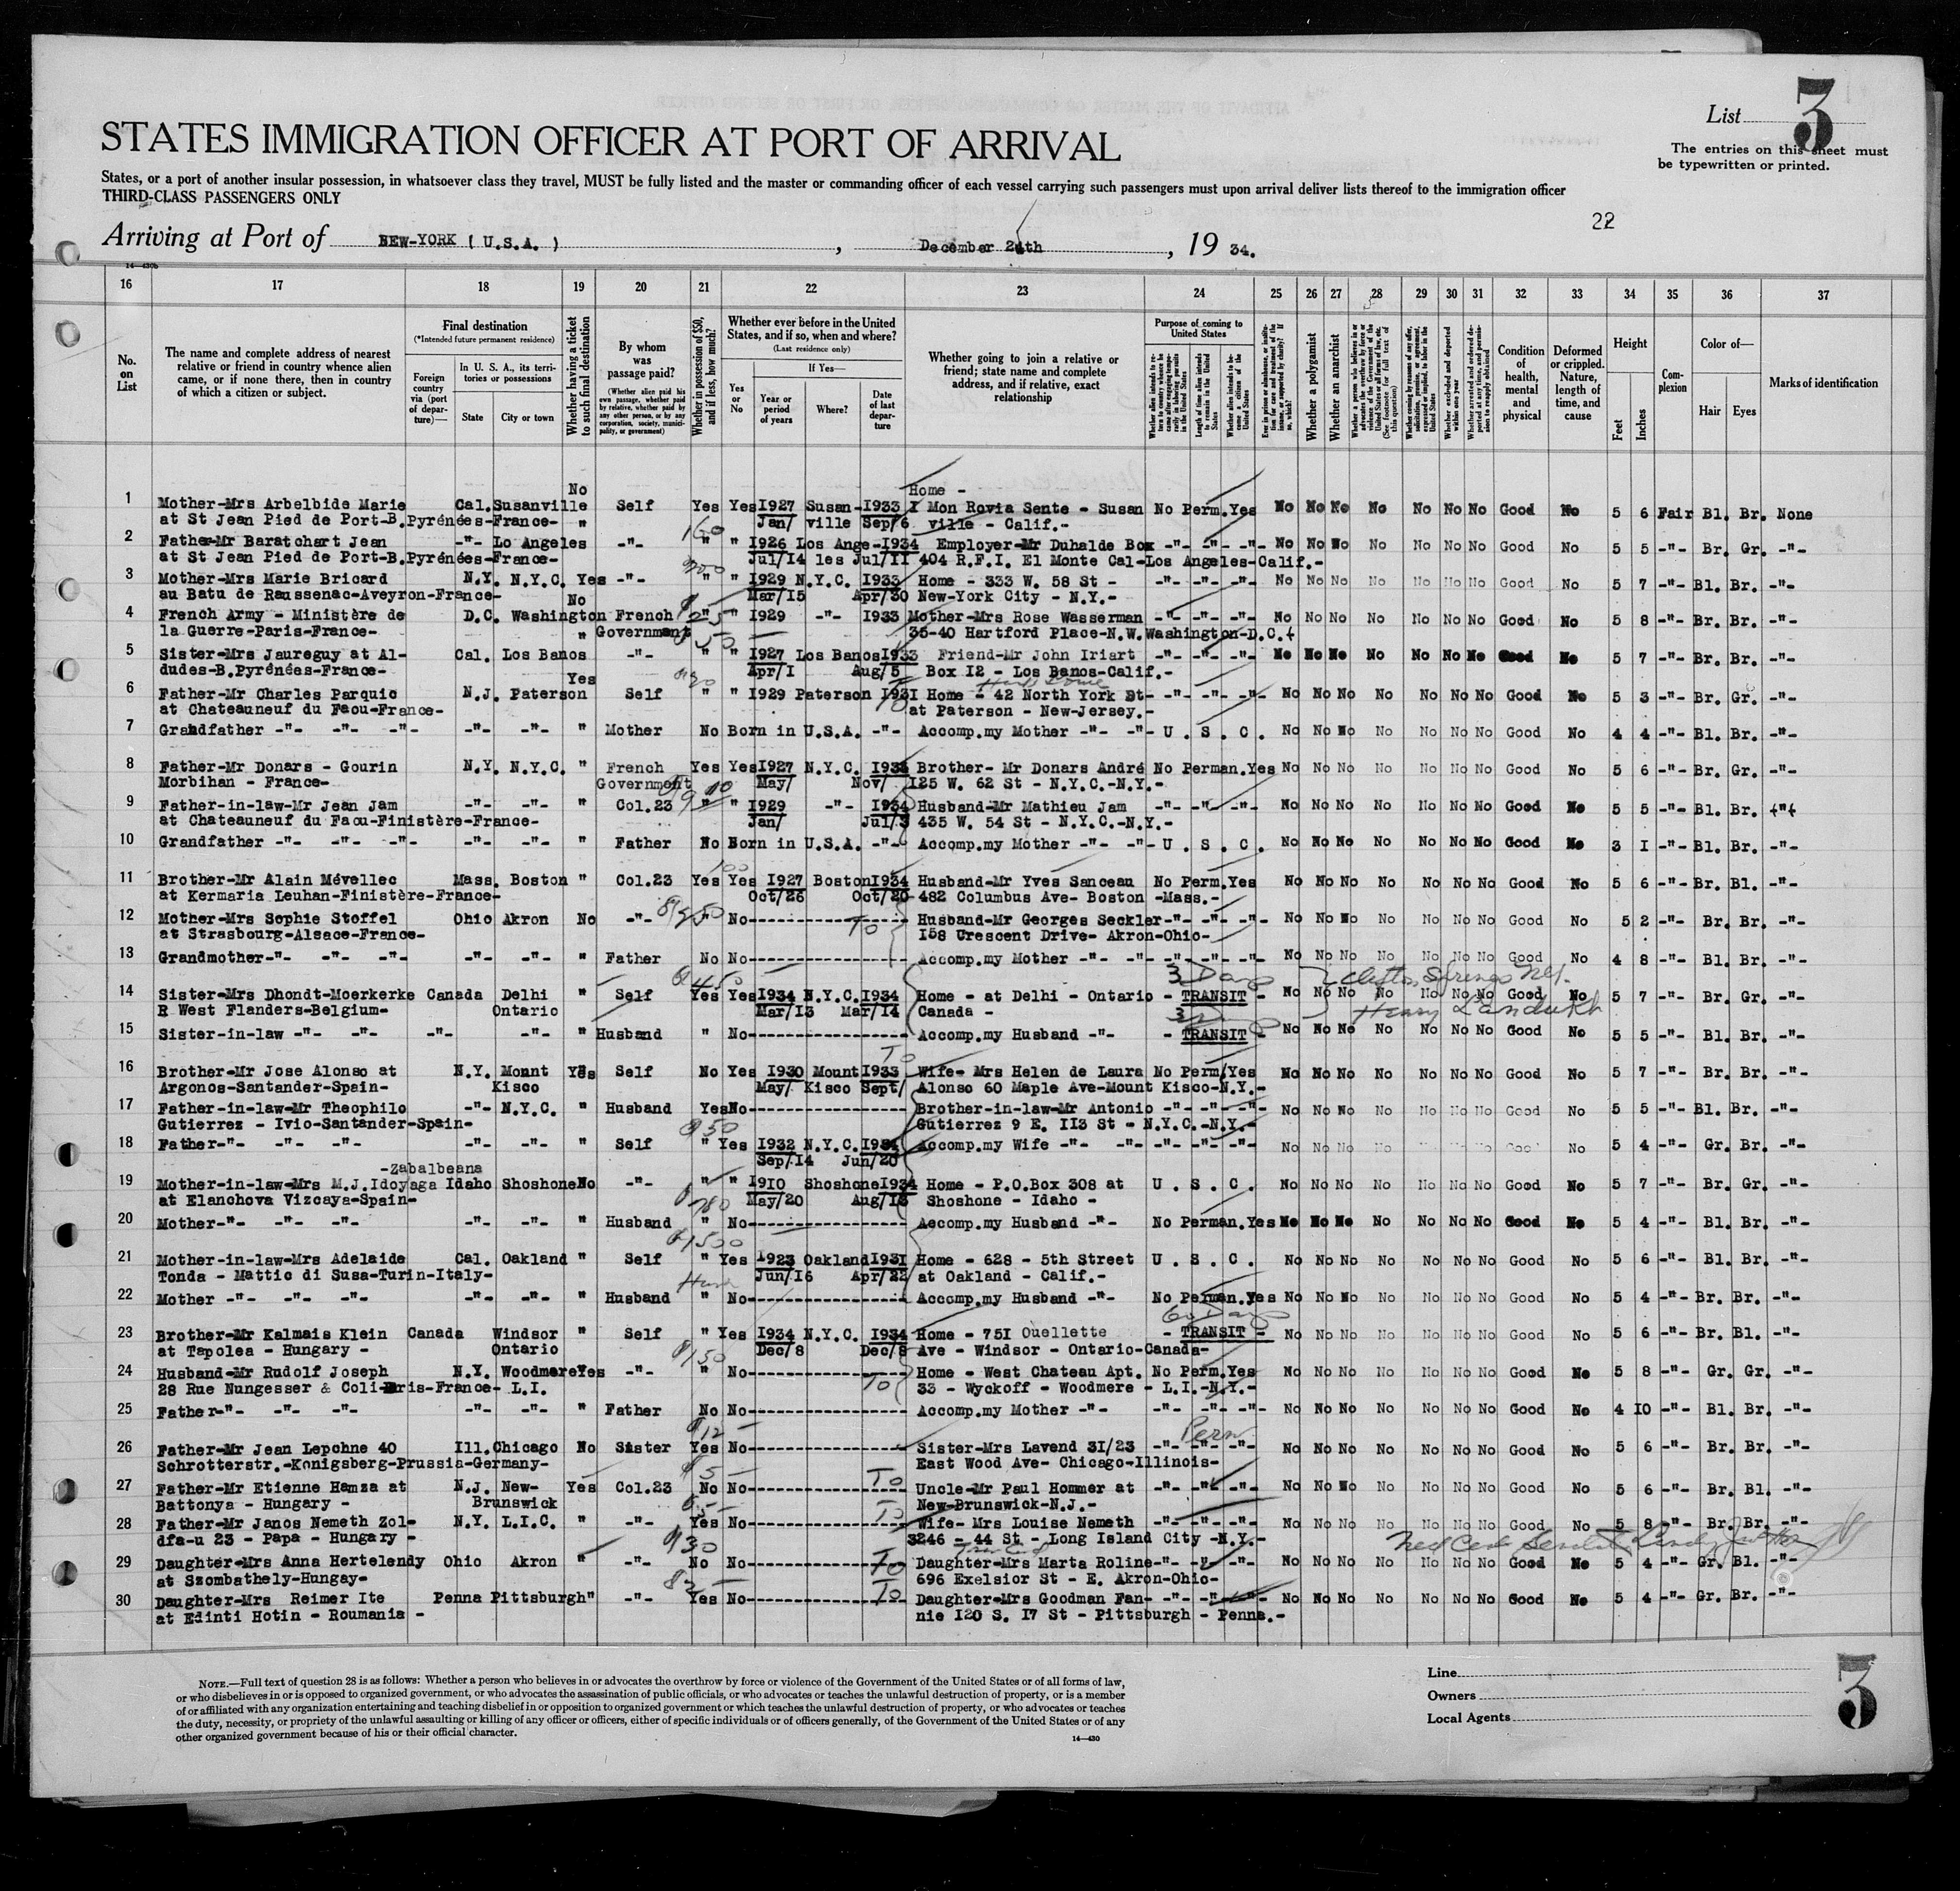 List 3
STATES IMMIGRATION OFFICER AT PORT OF ARRIVAL
The entries on this sheet must
be typewritten or printed.
States, or a port of another insular possession, in whatsoever class they travel, MUST be fully listed and the master or commanding officer of each vessel carrying such passengers must upon arrival deliver lists thereof to the immigration officer
THIRD-CLASS PASSENGERS ONLY
22
Arriving at Port of NEW-YORK ( U.S.A. ) , December 24th , 19 34.
14-430b
16 17 18 19 20 21 22 23 24 25 26 27 28 29 30 31 32 33 34 35 36 37
No. on List
The name and complete address of nearest relative or friend in country whence alien came, or if none there, then in country of which a citizen or subject.
Final destination
(*Intended future permanent residence)
Foreign country via (port of departure)—
In U. S. A., its territories or possessions
State City or town
Whether having a ticket to such final destination
By whom was passage paid?
(Whether alien paid his own passage, whether paid by relative, whether paid by any other person, or by any corporation, society, municipality, or government)
Whether in possession of $50, and if less, how much?
Whether ever before in the United States, and if so, when and where?
(Last residence only)
Yes or No
If Yes—
Year or period of years Where? Date of last departure
Whether going to join a relative or friend; state name and complete address, and if relative, exact relationship
Purpose of coming to United States
Length of time alien intends to remain in the United States
Whether alien intends to become a citizen of the United States
Whether a polygamist
Whether an anarchist
Condition of health, mental and physical
Deformed or crippled. Nature, length of time, and cause
Height
Feet Inches
Complexion
Color of—
Hair Eyes
Marks of identification
No Home -
1 Mother-Mrs Arbelbide Marie Cal. Susanville Self Yes Yes I927 Susan- I933 I Mon Rovia Sente - Susan No Perm. Yes No No No No No No No Good No 5 6 Fair Bl. Br. None
at St Jean Pied de Port-B.Pyrénées-France- " Jan/ ville Sep/6 ville - Calif.-
2 Father-Mr Baratchart Jean -"- Lo Angeles -"- " " I926 Los Ange- I934 Employer-Mr Duhalde Box -"- -"- -"- No No No No No No No Good No 5 5 -"- Br. Gr. -"-
at St Jean Pied de Port-B.Pyrénées-France- Jul/I4 les Jul/II 404 R.F.I. El Monte Cal-Los Angeles-Calif.-
3 Mother-Mrs Marie Bricard N.Y. N.Y.C. Yes -"- " " I929 N.Y.C. I933 Home - 333 W. 58 St - -"- -"- -"- No No No No No No No Good No 5 7 -"- Bl. Br. -"-
au Batu de Raussenac-Aveyron-France- No Mar/I5 Apr/30 New-York City - N.Y.-
4 French Army - Ministère de D.C. Washington French " " I929 -"- I933 Mother-Mrs Rose Wasserman -"- -"- -"- No No No No No No No Good No 5 8 -"- Br. Br. -"-
la Guerre-Paris-France- " Government 35-40 Hartford Place-N.W.Washington-D.C.
5 Sister-Mrs Jaureguy at Al- Cal. Los Banos -"- " " I927 Los Banos I933 Friend-Mr John Iriart -"- -"- -"- No No No No No No No Good No 5 7 -"- Br. Br. -"-
dudes-B.Pyrénées-France- Yes Apr/I Aug/5 Box I2 - Los Banos-Calif.-
6 Father-Mr Charles Parquic N.J. Paterson Self " " I929 Paterson I93I Home - 42 North York St- -"- -"- -"- No No No No No No No Good No 5 3 -"- Br. Gr. -"-
at Chateauneuf du Faou-France- at Paterson - New-Jersey.-
7 Grandfather -"- -"- -"- -"- -"- " Mother No Born in U.S.A. -"- Accomp.my Mother -"- -"- U . S . C . No No No No No No No Good No 4 4 -"- Bl. Br. -"-
8 Father-Mr Donars - Gourin N.Y. N.Y.C. " French Yes Yes I927 N.Y.C. I933 Brother- Mr Donars André No Perman. Yes No No No No No No No Good No 5 6 -"- Br. Gr. -"-
Morbihan - France- Government May/ Nov/ I25 W. 62 St - N.Y.C.-N.Y.-
9 Father-in-law-Mr Jean Jam -"- -"- " Col.23 " " I929 -"- I934 Husband-Mr Mathieu Jam -"- -"- -"- No No No No No No No Good No 5 5 -"- Bl. Br. -"-
at Chateauneuf du Faou-Finistère-France- Jan/ Jul/3 435 W. 54 St - N.Y.C.-N.Y.-
10 Grandfather -"- -"- -"- -"- -"- " Father No Born in U.S.A. -"- Accomp.my Mother -"- -"- U . S . C . No No No No No No No Good No 3 I -"- Bl. Br. -"-
11 Brother-Mr Alain Mévellec Mass. Boston " Col.23 Yes Yes I927 Boston I934 Husband-Mr Yves Sanceau No Perm. Yes No No No No No No No Good No 5 6 -"- Br. Bl. -"-
at Kermaria Leuhan-Finistère-France- Oct/26 Oct/20 482 Columbus Ave- Boston -Mass.-
12 Mother-Mrs Sophie Stoffel Ohio Akron No -"- " No Husband-Mr Georges Seckler -"- -"- -"- No No No No No No No Good No 5 2 -"- Br. Br. -"-
at Strasbourg-Alsace-France- I58 Crescent Drive- Akron-Ohio-
13 Grandmother-"- -"- -"- -"- -"- " Father No No Accomp.my Mother -"- -"- -"- -"- No No No No No No No Good No 4 8 -"- Bl. Br. -"-
3 Days Clifton Springs N.Y.
14 Sister-Mrs Dhondt-Moerkerke Canada Delhi " Self Yes Yes I934 N.Y.C. I934 Home - at Delhi - Ontario - TRANSIT - No No No No No No No Good No 5 7 -"- Br. Gr. -"-
R West Flanders-Belgium- Ontario Mar/I3 Mar/I4 Canada -
15 Sister-in-law -"- -"- -"- -"- " Husband " No Accomp.my Husband -"- - TRANSIT - No No No No No No No Good No 5 5 -"- Bl. Br. -"-
16 Brother-Mr Jose Alonso at N.Y. Mount Yes Self No Yes I930 Mount I933 Wife- Mrs Helen de Laura No Perm. Yes No No No No No No No Good No 5 7 -"- Br. Br. -"-
Argonos-Santander-Spain- Kisco May/ Kisco Sept/ Alonso 60 Maple Ave-Mount Kisco-N.Y.-
17 Father-in-law-Mr Theophilo -"- N.Y.C. " Husband Yes No Brother-in-law-Mr Antonio -"- -"- -"- No No No No No No No Good No 5 5 -"- Bl. Br. -"-
Gutierrez - Ivio-Santander-Spain- Gutierrez 9 E. II3 St - N.Y.C.-N.Y.-
18 Father-"- -"- -"- -"- -"- " Self " Yes I932 N.Y.C. I934 Accomp.my Wife -"- -"- -"- -"- -"- No No No No No No No Good No 5 4 -"- Gr. Br. -"-
Sep/I4 Jun/20
-Zabalbeana
19 Mother-in-law-Mrs M.J.Idoyaga Idaho Shoshone No -"- " " I9I0 Shoshone I934 Home - P.O.Box 308 at U . S . C . No No No No No No No Good No 5 7 -"- Br. Gr. -"-
at Elanchova Vizcaya-Spain- May/20 Aug/I8 Shoshone - Idaho -
20 Mother-"- -"- -"- -"- -"- " Husband " No Accomp.my Husband -"- No Perman. Yes No No No No No No No Good No 5 4 -"- Bl. Br. -"-
21 Mother-in-law-Mrs Adelaide Cal. Oakland " Self " Yes I923 Oakland I93I Home - 628 - 5th Street U . S . C . No No No No No No No Good No 5 6 -"- Bl. Br. -"-
Tonda - Mattic di Susa-Turin-Italy- Jun/I6 Apr/22 at Oakland - Calif.-
22 Mother -"- -"- -"- -"- -"- " Husband " No Accomp.my Husband -"- No Perman. Yes No No No No No No No Good No 5 4 -"- Br. Br. -"-
60 Days
23 Brother-Mr Kalmais Klein Canada Windsor " Self " Yes I934 N.Y.C. I934 Home - 75I Ouellette - TRANSIT - No No No No No No No Good No 5 6 -"- Br. Bl. -"-
at Tapolea - Hungary - Ontario Dec/8 Dec/8 Ave - Windsor - Ontario-Canada-
24 Husband-Mr Rudolf Joseph N.Y. Woodmere Yes -"- " No Home - West Chateau Apt. No Perm. Yes No No No No No No No Good No 5 8 -"- Gr. Gr. -"-
28 Rue Nungesser & Coli-Paris-France- L.I. 33 - Wyckoff - Woodmere - L.I.-N.Y.-
25 Father-"- -"- -"- -"- -"- " Father No No Accomp.my Mother -"- -"- -"- -"- No No No No No No No Good No 4 I0 -"- Bl. Br. -"-
26 Father-Mr Jean Lepohne 40 Ill. Chicago No Sister Yes No Sister-Mrs Lavend 3I/23 -"- -"- -"- No No No No No No No Good No 5 6 -"- Br. Br. -"-
Schrotterstr.-Konigsberg-Prussia-Germany- East Wood Ave- Chicago-Illinois-
27 Father-Mr Etienne Hamza at N.J. New- Yes Col.23 No No Uncle-Mr Paul Hommer at -"- -"- -"- No No No No No No No Good No 5 6 -"- Br. Bl. -"-
Battonya - Hungary - Brunswick New-Brunswick-N.J.-
28 Father-Mr Janos Nemeth Zol- N.Y. L.I.C. " -"- Yes No Wife- Mrs Louise Nemeth -"- -"- -"- No No No No No No No Good No 5 8 -"- Br. Br. -"-
dfa-u 23 - Papa - Hungary - 3246 - 44 St - Long Island City -N.Y.-
29 Daughter-Mrs Anna Hertelendy Ohio Akron " -"- No No Daughter-Mrs Marta Roline -"- -"- -"- No No No No No No No Good No 5 4 -"- Gr. Bl. -"-
at Szombathely-Hungay- 696 Exelsior St - E. Akron-Ohio-
30 Daughter-Mrs Reimer Ite Penna Pittsburgh " -"- Yes No Daughter-Mrs Goodman Fan- -"- -"- -"- No No No No No No No Good No 5 4 -"- Gr. Br. -"-
at Edinti Hotin - Roumania - nie I20 S. I7 St - Pittsburgh - Penna.-
NOTE.—Full text of question 28 is as follows: Whether a person who believes in or advocates the overthrow by force or violence of the Government of the United States or of all forms of law,
or who disbelieves in or is opposed to organized government, or who advocates the assassination of public officials, or who advocates or teaches the unlawful destruction of property, or is a member
of or affiliated with any organization entertaining and teaching disbelief in or opposition to organized government or which teaches the unlawful destruction of property, or who advocates or teaches
the duty, necessity, or propriety of the unlawful assaulting or killing of any officer or officers, either of specific individuals or of officers generally, of the Government of the United States or of any
other organized government because of his or their official character.
14—430
Line
Owners
Local Agents
3